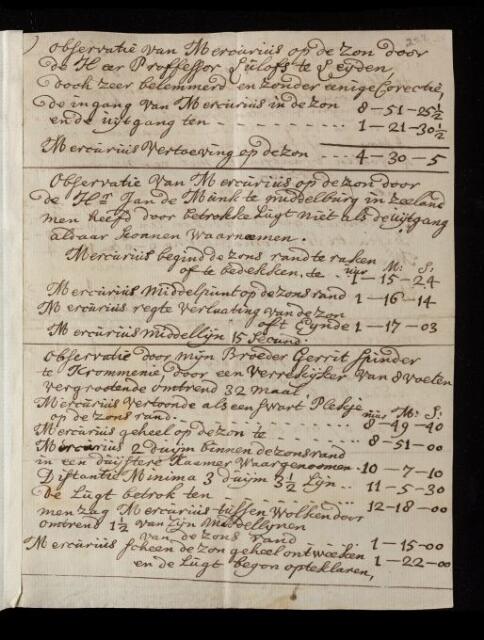 Observatie van Mercurius op de Zon door
de Heer Proffessor Lulofs te Leyden,
doch zeer belemmerd en zonder eenige Corectie,
de ingang van Mercurius in de zon 8-51-25½
en de uijtgang ten 1-21-30½
Mercurius Vertoeving op de zon 4-30-5
Observatie van Mercurius op de zon door
de Hr Jan de Munk te middelburg in zeeland
men heefd door betrokke Lugt niet als de uijtgang
aldaar konnen waarneemen.
Mercurius begind de zons rand te raken
of te bedekken. te uur M: S: 1-15-24
Mercurius Middelpunt op de zons rand 1-16-14
Mercurius regte verlaating van de zon
oft Eynde 1-17-03
Mercurius middellijn 15 Secund:
Observatie door mijn Broeder Gerrit Spinder
te Krommenie, door een verrekijker van 8 voeten
vergrootende omtrend 32 maal.
Mercurius Vertoonde als een swart Plekje
op de zons rand. uur M: S: 8-49-40
Mercurius geheel op de zon te 8-51-00
Mercurius 2 duijm binnen de zons rand
in een duijstere Kaemer Waargenoomen 10-7-10
Distantie Minima 3 duijm 3½ Lijn 11-5-30
De Lugt betrok ten 12-18-00
men zag Mercurius tussen Wolken door
omtrend 1½ van zijn Middellijnen
van de zons rand 1-15-00
Mercurius scheen de zon geheel ontweeken 1-22-00
en de Lugt begon op te klaren,